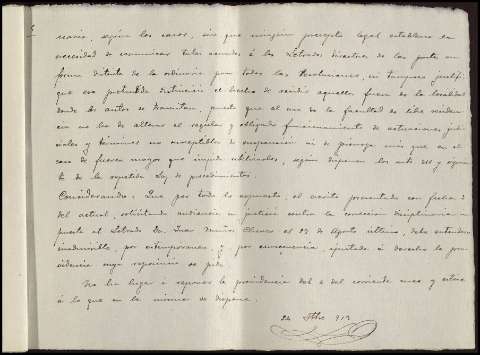 nario, según los casos, sin que ningún precepto legal establezca la
necesidad de comunicar tales acuerdos á los Letrados directores de las partes en
forma distinta de la ordinaria para todas las resoluciones, ni tampoco justifi-
que esa pretendida distinción el hecho de residir aquellos fuera de la localidad
donde los autos se tramitan, puesto que el uso de la facultad de libre residen-
cia no ha de alterar el regular y obligado funcionamiento de actuaciones judi-
ciales y términos no susceptibles de suspensión ni de prórroga más que en el
caso de fuerza mayor que impida utilizarlos, según disponen los arts 311 y siguien-
te de la repetida Ley de procedimientos.
Considerando: Que por todo lo expuesto, el escrito presentado con fecha 2
del actual, solicitando audiencia en justicia contra la corrección disciplinaria im-
puesta al Letrado Dn. Juan Muñoz el 13 de Agosto último, debe entenderse
inadmisible, por extemporaneo, y, por consecuencia, ajustada á derecho la pro-
videncia cuya reposición se pide.
No ha lugar á reponer la providencia del 4 del corriente mes y estése
á lo que en la misma se dispone.
24 913